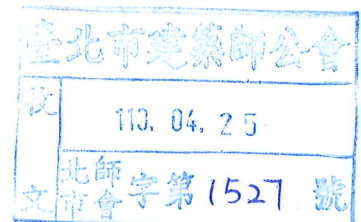 臺北市建築師公會
收文
113. 04. 25
北市師會字第1527號